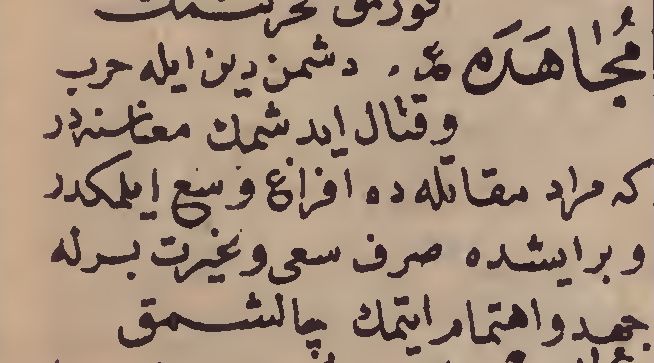 قورمق خرتشمك
مُجَاهَدَه ع. دشمن دين ايله حرب
وقتال ايدشمك معناسنه در
كه مراد مقاتله ده افراغ وسع ايلمكدر
وبر ايشده صرف سعى وغيرت بسرله
جهد واهتمام ايتمك چالشمق